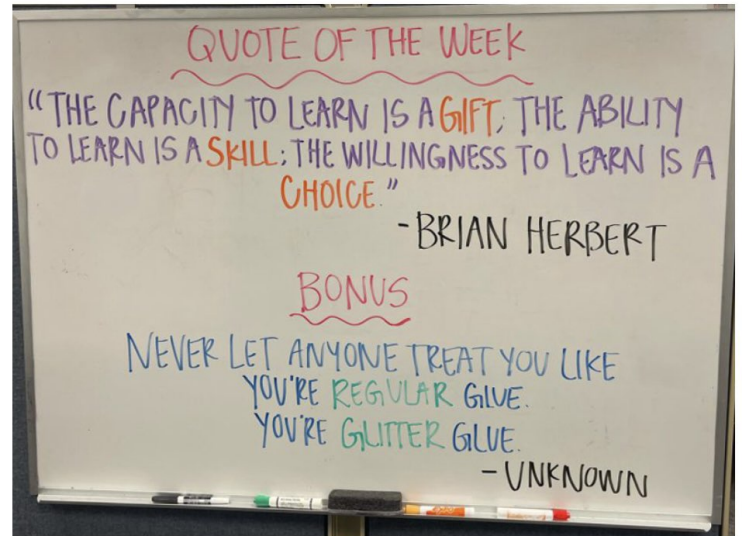 QUOTE OF THE WEEK
"THE CAPACITY TO LEARN IS A GIFT; THE ABILITY
TO LEARN IS A SKILL; THE WILLINGNESS TO LEARN IS A
CHOICE."
-BRIAN HERBERT
BONUS
NEVER LET ANYONE TREAT YOU LIKE
YOU'RE REGULAR GLUE.
YOU'RE GLITTER GLUE.
-UNKNOWN